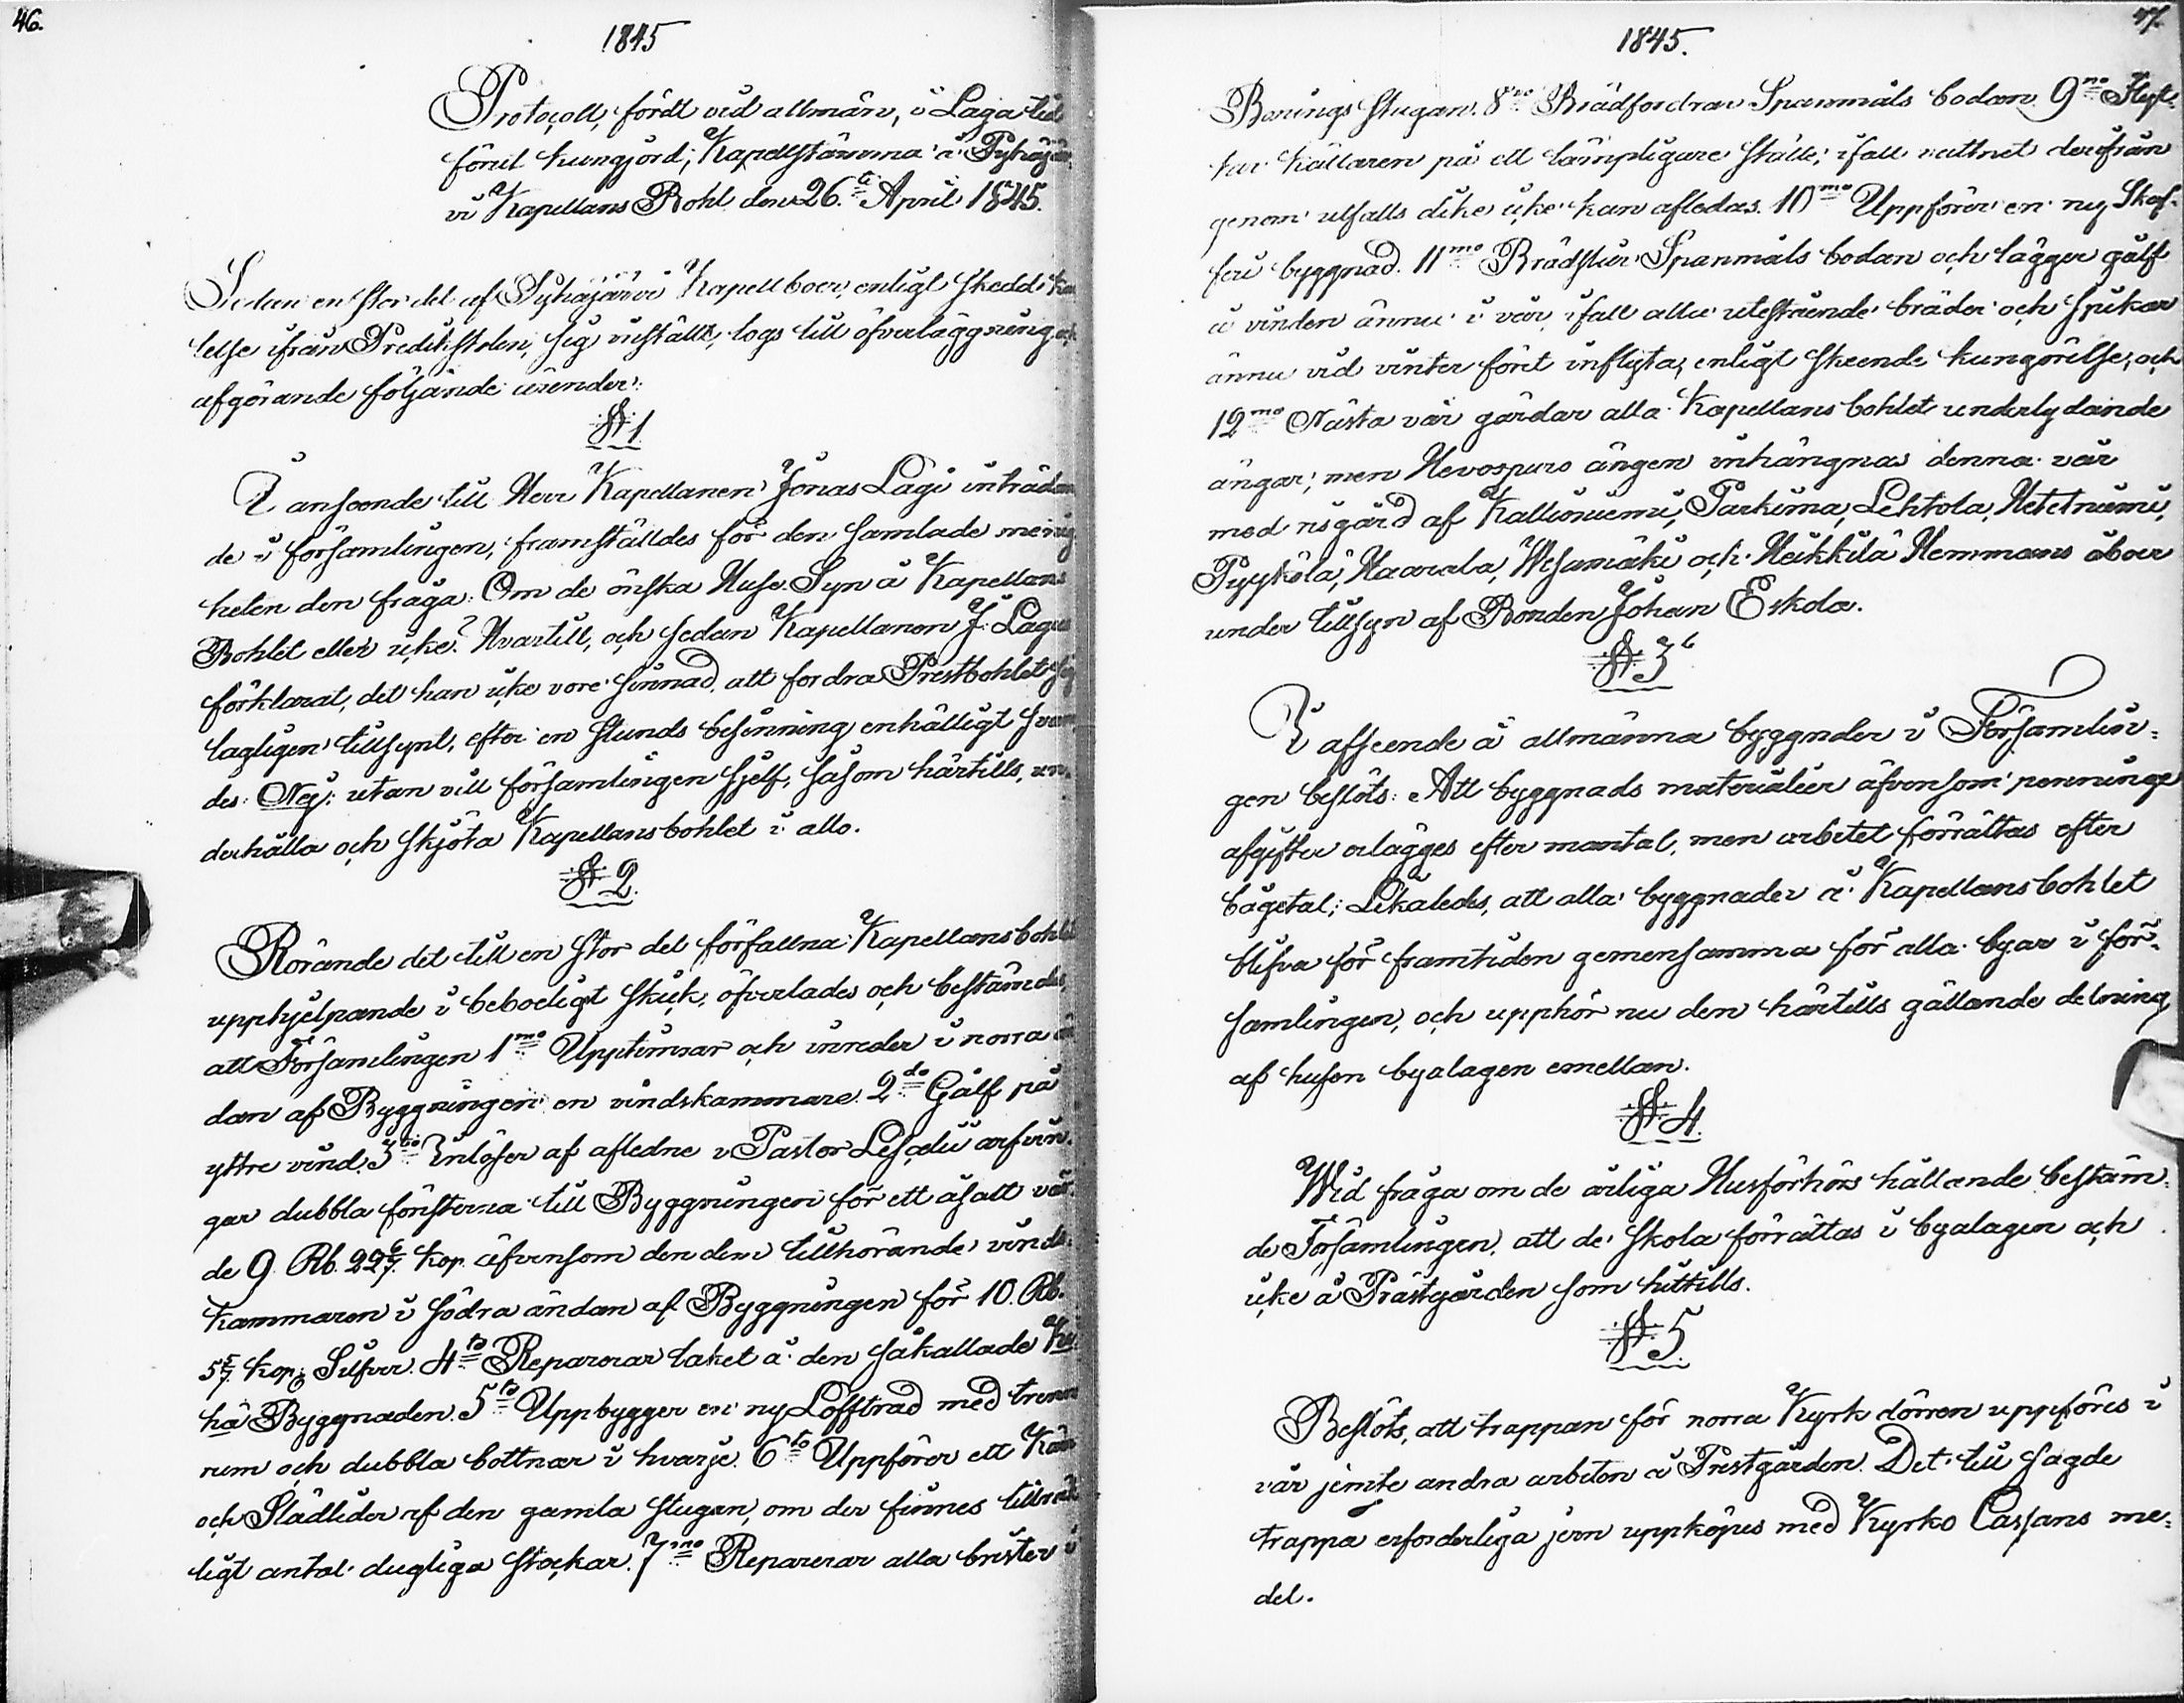 46.
1845
Protocoll, fördt vid allmän, i Laga tid
förut kungjord, Kapellstämma å Pyhäjär
vi Kapellans Bohl den 26.ti April 1845.
Sedan en stor del af Pyhäjärvi Kapellboer, enligt skedd
telse ifrån Predikstolen, sig inställt, togs till öfverläggning och
afgörande följande ärender:
§ 1.
I anseende till Herr Kapellanen Jonas Lagi inträdan
de i församlingen, framställdes för den samlade menig
heten den fråga: Om de önska Huse Syn å Kapellans
Bohlet eller icke? Hvartill, och sedan Kapellanen J. Lagus
förklarat, det han icke vore sinnad, att fordra Prestbohlet
lagligen tillsynt, efter en stunds besinning enhälligt svara
des: Nej: utan vill församlingen sjelf, såsom härtills, un-
derhålla och skjöta Kapellansbohlet i allo.
§ 2.
Rörande det till en stor del förfallna Kapellansbohlets
upphjelpande i beboeligt skick, öfverlades och bestämdes,
att Församlingen 1mo Upptimrar och inreder i norra än
dan af Byggningen en vindskammare. 2do Gålf på
yttre vind. 3tio Inlöser af afledne v Pastor Lescelii arfvin-
gar dubbla fönsterna till Byggningen för ett åsatt vär
de 9 Rb. 22 6/7. kop. äfvensom den dem tillhörande vinds-
kammaren i södra ändan af Byggningen för 10. Rb.
5 5/7. kop. Silfver. 4to Reparerar taket å den såkallade
hä Byggnaden. 5to Uppbygger en ny Lofftrad med trenne
rum och dubbla bottnar i hvarje. 6to Uppförer ett
och Slädlider af den gamla stugan, om der finnes tillräck
ligt antal dugliga stockar. 7mo Reparerar alla brister i
47.
1845.
Bonings stugan. 8vo Brädfordrar Spanmåls bodan. 9no Flyt-
tar källaren på ett lämpligare ställe, ifall vattnet derifrån
genom utfalls dike icke kan afledas. 10mo Uppförer en ny Skaf-
feri byggnad. 11mo Brädslår Spanmåls bodan och lägger gålf
å vinden ännu i vår, ifall alla utestående bräder och spikar
ännu vid vinter föret inflyta, enligt skeende kungörelse, och
12mo Nästa vår gärdar alla Kapellans bohlet underlydande
ängar; men Hevospuro ängen inhängnas denna vår
med risgärd af Kallioniemi, Parkima, Lehtola, Hetetniemi,
Pyykölä, Haarala, Wesamäki och Heikkilä Hemmans åboer
under tillsyn af Bonden Johan Eskola.
§ 3
I afseende å allmänna byggnder i Församlin-
gen beslöts: Att byggnads materialier äfvensom penninge
afgifter erlägges efter mantal, men arbetet förrättas efter
bågetal; Likaledes, att alla byggnader å Kapellansbohlet
blifva för framtiden gemensamma för alla byar i för-
samlingen, och upphör nu den härtills gällande delning
af husen byalagen emellan.
§ 4.
Wid fråga om de årliga Husförhörs hållande bestäm-
de Församlingen, att de skola förrättas i byalagen och
icke å Prästgården som hittills.
§ 5
Beslöts, att trappan för norra Kyrk dörren uppföres i
vår jemte andra arbeten å Prestgården. Det till sagde
trappa erforderliga jern uppköpes med Kyrko Cassans me-
del.